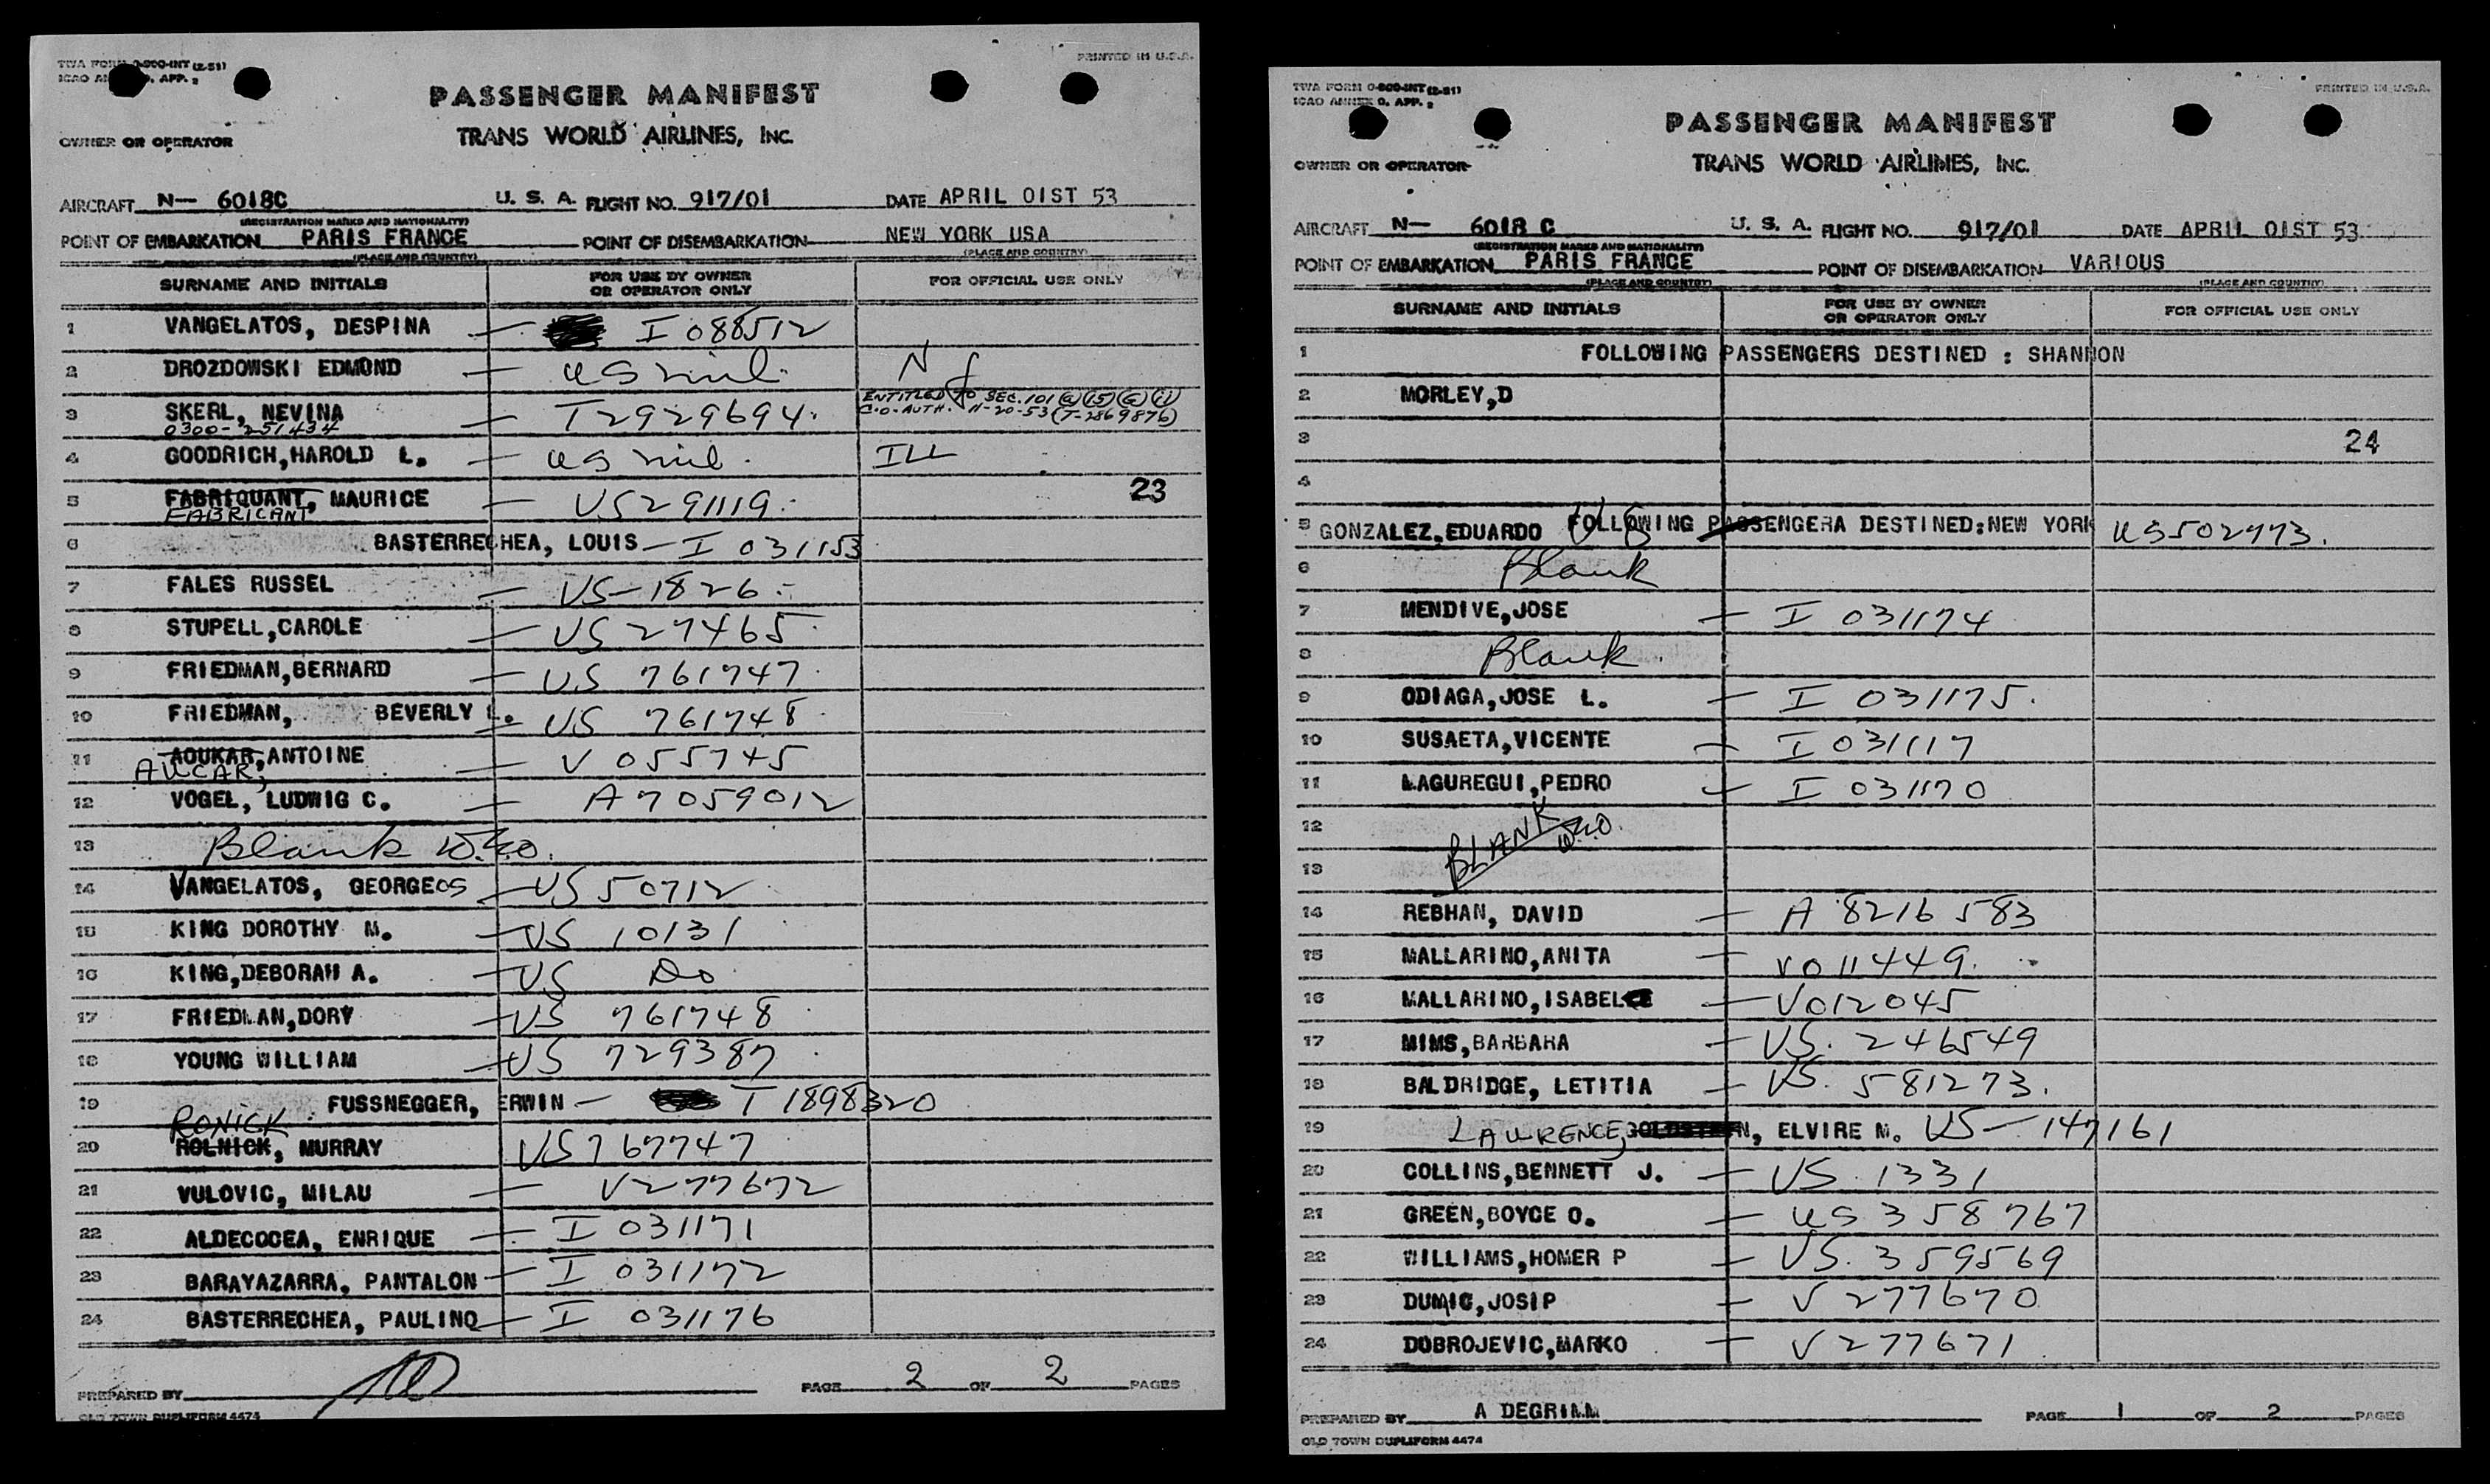 TWA FORM 0-800-INT (2-51)
PRINTED IN U.S.A.
PASSENGER MANIFEST
TRANS WORLD AIRLINES, INC.
OWNER OR OPERATOR
AIRCRAFT N- 6018C U. S. A. FLIGHT NO. 917/01 DATE APRIL 01ST 53
(REGISTRATION MARKS AND NATIONALITY)
POINT OF EMBARKATION PARIS FRANCE POINT OF DISEMBARKATION NEW YORK USA
(PLACE AND COUNTRY) (PLACE AND COUNTRY)
SURNAME AND INITIALS FOR USE BY OWNER OR OPERATOR ONLY FOR OFFICIAL USE ONLY
1 VANGELATOS, DESPINA — I 088512
2 DROZDOWSKI EDMOND — US mil. N
3 SKERL, NEVINA — T2929694. ENTITLED TO SEC. 101 (a)(15)(G)(ii)
0300-251434 C.O. AUTH. 11-20-53 (T-2869876)
4 GOODRICH,HAROLD L. — US mil. ILL
5 FABRIQUANT, MAURICE — US291119. 23
FABRICANT
6 BASTERRECHEA, LOUIS — I 031153
7 FALES RUSSEL — US-1826.
8 STUPELL,CAROLE — US 27465.
9 FRIEDMAN,BERNARD — US 761747.
10 FRIEDMAN, BEVERLY L. — US 761748.
11 AOUKAR,ANTOINE — V 055745
AUCAR,
12 VOGEL, LUDWIG C. — A7059012
13 Blank
14 VANGELATOS, GEORGEOS — US 50712
15 KING DOROTHY M. — US 10131
16 KING,DEBORAH A. — US Do
17 FRIEDMAN,DORY — US 761748
18 YOUNG WILLIAM — US 729387
19 FUSSNEGGER, ERWIN — T 1898320
RONICK
20 ROLNICK, MURRAY US767747
21 VULOVIC, MILAU — V277672
22 ALDECOCEA, ENRIQUE — I 031171
23 BARAYAZARRA, PANTALON — I 031172
24 BASTERRECHEA, PAULINO — I 031176
PREPARED BY PAGE 2 OF 2 PAGES
OLD TOWN DUPLIFORM 4474
TWA FORM 0-800-INT (2-51)
ICAO ANNEX 9, APP. 2
PRINTED IN U.S.A.
PASSENGER MANIFEST
TRANS WORLD AIRLINES, INC.
OWNER OR OPERATOR
AIRCRAFT N- 6018 C U. S. A. FLIGHT NO. 917/01 DATE APRIL 01ST 53
(REGISTRATION MARKS AND NATIONALITY)
POINT OF EMBARKATION PARIS FRANCE POINT OF DISEMBARKATION VARIOUS
(PLACE AND COUNTRY) (PLACE AND COUNTRY)
SURNAME AND INITIALS FOR USE BY OWNER OR OPERATOR ONLY FOR OFFICIAL USE ONLY
1 FOLLOWING PASSENGERS DESTINED : SHANNON
2 MORLEY,D
3 24
4
5 GONZALEZ,EDUARDO FOLLOWING PASSENGERA DESTINED:NEW YORK US502973.
6 Blank
7 MENDIVE,JOSE — I 031174
8 Blank.
9 ODIAGA,JOSE L. — I 031175.
10 SUSAETA,VICENTE — I 031117
11 LAGUREGUI,PEDRO — I 031170
12 BLANK
13
14 REBHAN, DAVID — A 8216583
15 MALLARINO,ANITA — V011449.
16 MALLARINO,ISABEL — V012045
17 MIMS,BARBARA — US. 246549
18 BALDRIDGE, LETITIA — US. 581273.
19 LAWRENCE, GOLDSTEIN, ELVIRE M. US — 147161
20 COLLINS,BENNETT J. — US 1331
21 GREEN,BOYCE O. — US 358767
22 WILLIAMS,HOMER P — US. 359569
23 DUMIC,JOSIP — V 277670
24 DOBROJEVIC,MARKO — V 277671
PREPARED BY A DEGRIMM PAGE 1 OF 2 PAGES
OLD TOWN DUPLIFORM 4474